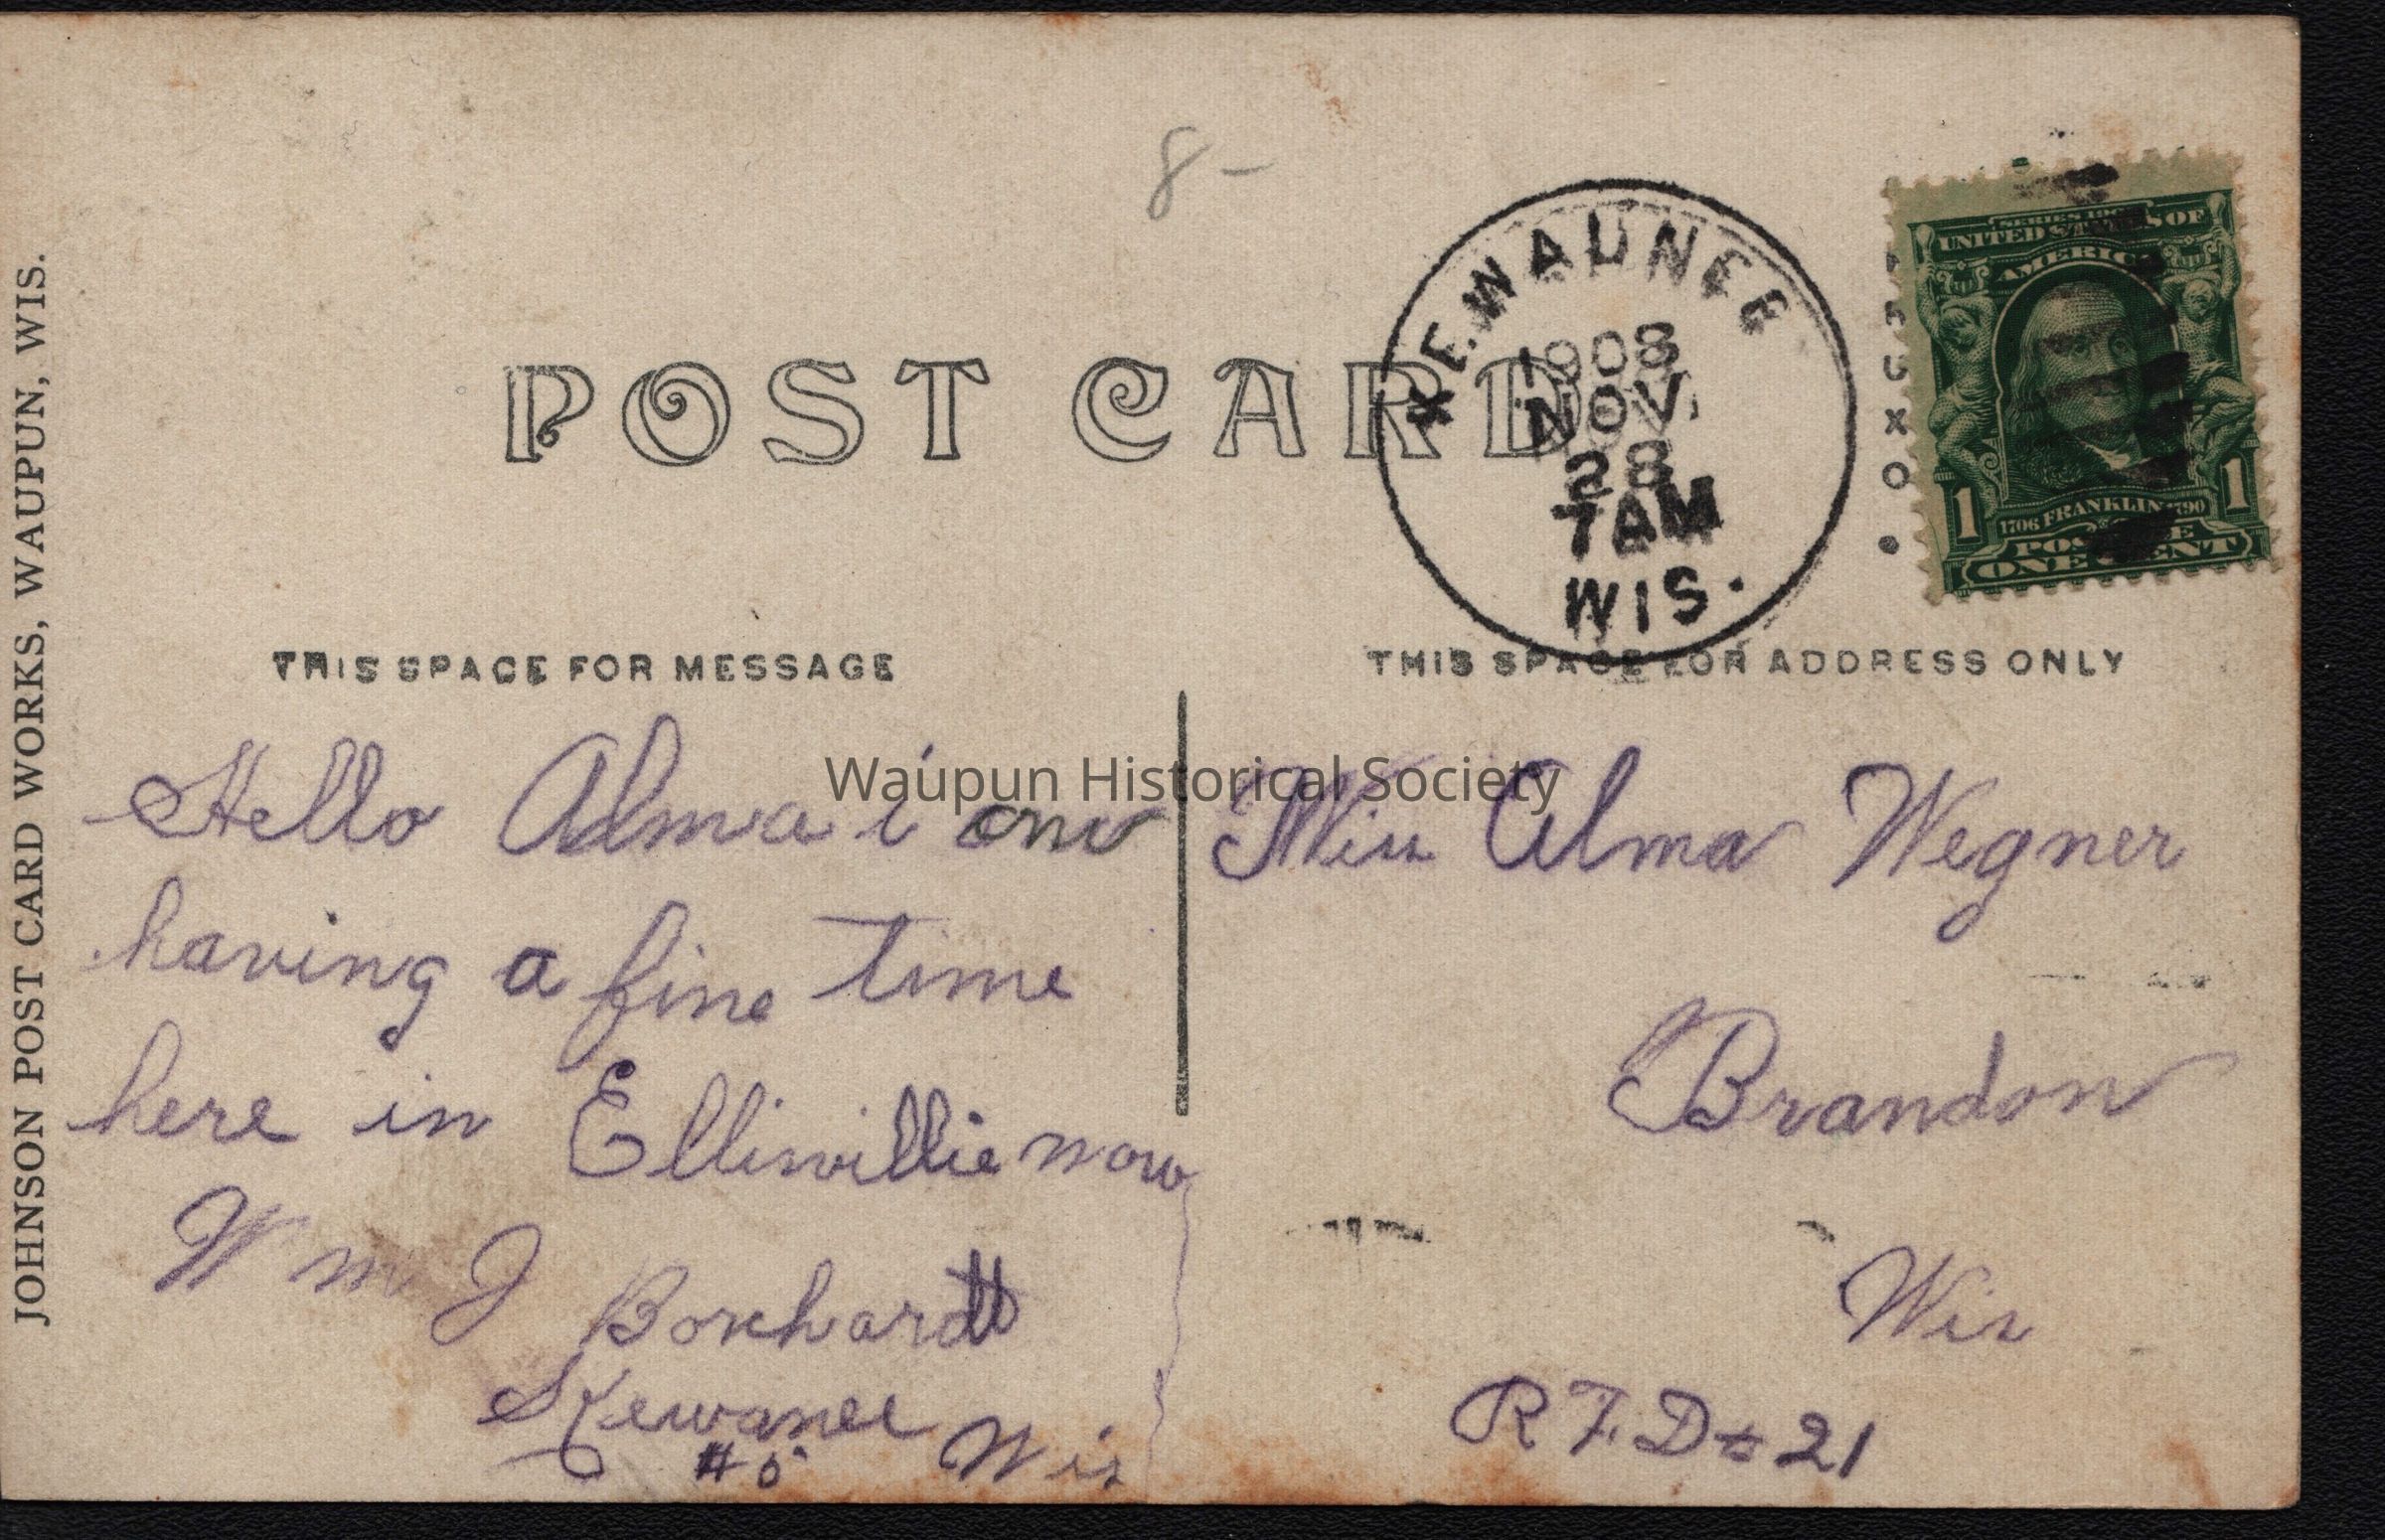 8-
KEWAUNEE
1908
NOV.
28
7 AM
WIS.
SERIES 1902
UNITED STATES OF
AMERICA
1 1
1706 FRANKLIN 1790
POSTAGE
ONE CENT
POST CARD
THIS SPACE FOR MESSAGE
THIS SPACE FOR ADDRESS ONLY
JOHNSON POST CARD WORKS, WAUPUN, WIS.
Waupun Historical Society
Hello Alma i am
having a fine time
here in Ellisvillie now
Wm J Borchardt
Kewanee Wis
Miss Alma Wegner
Brandon
Wis
R F. D # 21